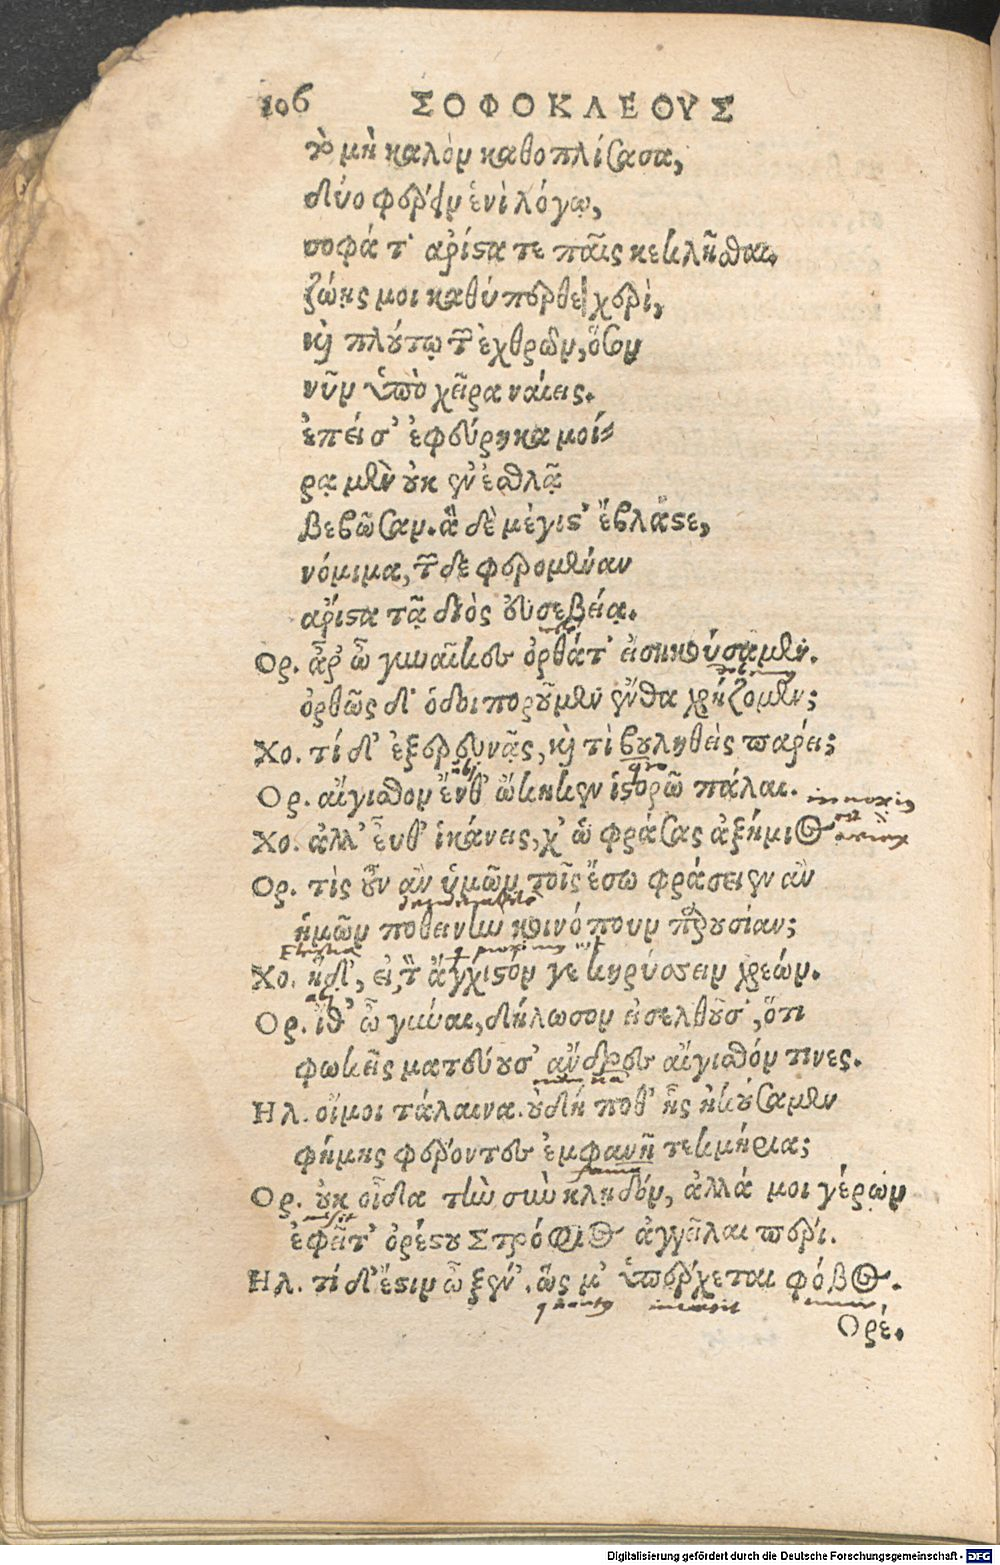 106 ΣΟΦΟΚΛΕΟΥΣ
τὸ μὴ καλὸν καθοπλίσασα,
δύο φέρειν ἑνὶ λόγῳ,
σοφά τ' ἀρίστα τε παῖς κεκλῆσθαι.
ζώῃς μοι καθύπερθε χερὶ,
καὶ πλούτῳ τῶν ἐχθρῶν, ὅσον
νῦν ὑπὸ χεῖρα ναίεις.
ἐπεί σ' ἐφεύρηκα μοί-
ρᾳ μὲν οὐκ ἐν ἐσθλᾷ
βεβῶσαν. ἃ δὲ μέγιστ' ἔβλαστε,
νόμιμα, τῶν δε φερομέναν
ἄριστα τᾷ διὸς εὐσεβείᾳ.
Ορ. ἆρ' ὦ γυναῖκες ὀρθάτ' εἰσηκούσαμεν.
ὀρθῶς δ' ὁδοιποροῦμεν ἔνθα χρῄζομεν;
Χο. τί δ' ἐξερευνᾷς, καὶ τὶ βουληθεὶς πάρει;
ubi
Ορ. αἴγισθον ἔνθ' ὤκηκεν ἱστορῶ πάλαι.
innoxius
Χο. ἀλλ' εὖθ' ἱκάνεις, χ' ὡ φράσας ἀζήμιος
Ορ. τίς οὖν ἂν ὑμῶν τοῖς ἔσω φράσειεν ἂν
ἡμῶν ποθεινὴν κοινόπουν παρουσίαν;
Χο. ἥδ', εἰ τὸν ἄγχιστον γε κηρύσσειν χρεών.
Ορ. ἴθ' ὦ γύναι, δήλωσον εἰσελθοῦσ', ὅτι
φωκεῖς ματεύουσ' ἄνδρες αἴγισθόν τινες.
Ηλ. οἴμοι τάλαινα. οὐδήποθ' ἧς ἠκούσαμεν
φήμης φέροντες ἐμφανῆ τεκμήρια;
fama
Ορ. οὐκ οἶδα τὴν σὴν κληδόν, ἀλλά μοι γέρων
misit
ἐφεῖτ' ὀρέστου Στρόφιος ἀγγεῖλαι πέρι.
Ηλ. τί δ' ἔστιν ὦ ξέν'. ὥς μ' ὑπέρχεται φόβος.
Ορέ.
Digitalisierung gefördert durch die Deutsche Forschungsgemeinschaft - DFG